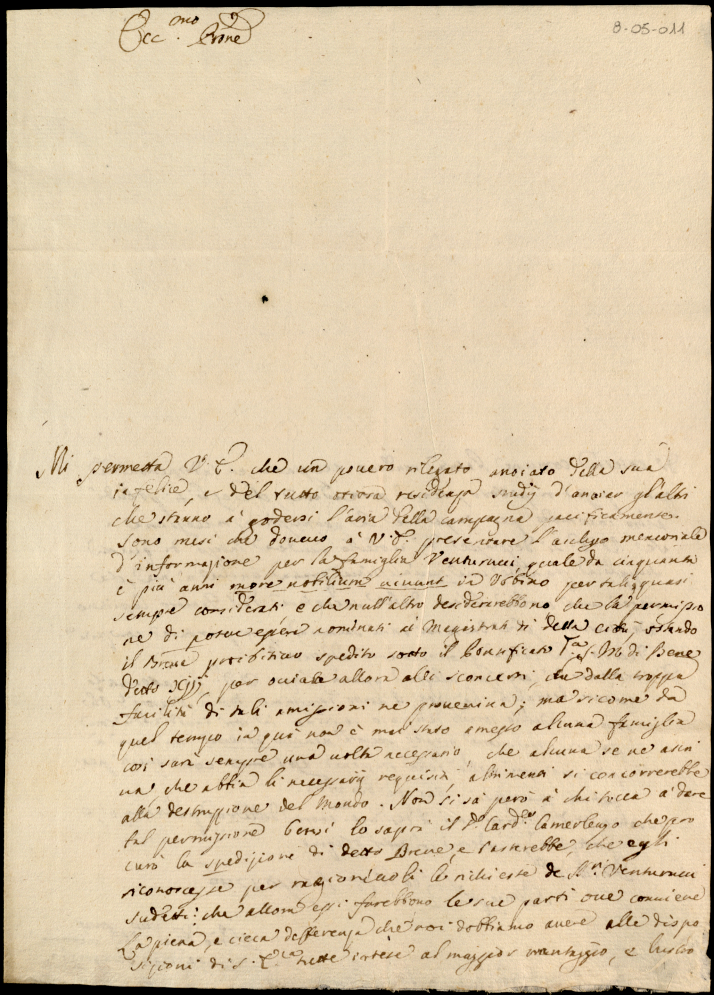 8-05-011
Ecc.mo Prone
Mi permetta V. E. che un povero rilegato anoiato della sua
infelice, e del tutto oziosa residenza studij d'anoiar gl'altri
che stanno à godersi l'aria della campagna pacificamente.
Sono mesi che doveuo à V. E. presentare l'accluso memoriale
d'informazione per la famiglia Venturucci, quale da cinquanta
è più anni more nobilium uiuunt in Urbino per tali quasi
sempre considerati, e che null'altro desiderarebbono, che la permissio
ne di poter essere nominati ai Magistrati di della città, stando
il Breve proibitiuo spedito sotto il Pontificato di Bene
detto XIII, per ouiare allora alli sconcerti, che dalla troppa
facilità di tali amissioni ne proueniua; ma sicome da
quel tempo in quà non è mai stato amesso alcuna famiglia
così sarà sempre una uolta necessario, che alcuna se ne asiu
ma che abbia li necessarij requisiti, altrimenti si concorrerebbe
alla destruzzione del Mondo. Non si sà però à chi tocca à dare
tal permissione bensì lo saprà il Card.le Camerlengo che pro
curò la spedizione di detto Breve, e basterebbe, che egli
riconoscesse per ragioneuoli le richieste de S.ri Venturucci
sudetti: che allora essi farebbono le sue parti oue conuiene
La piena, e cieca defferenza che noi dobbiamo auere alle dispo
sizioni di S. E. tutte intese al maggior uantaggio, e lustro